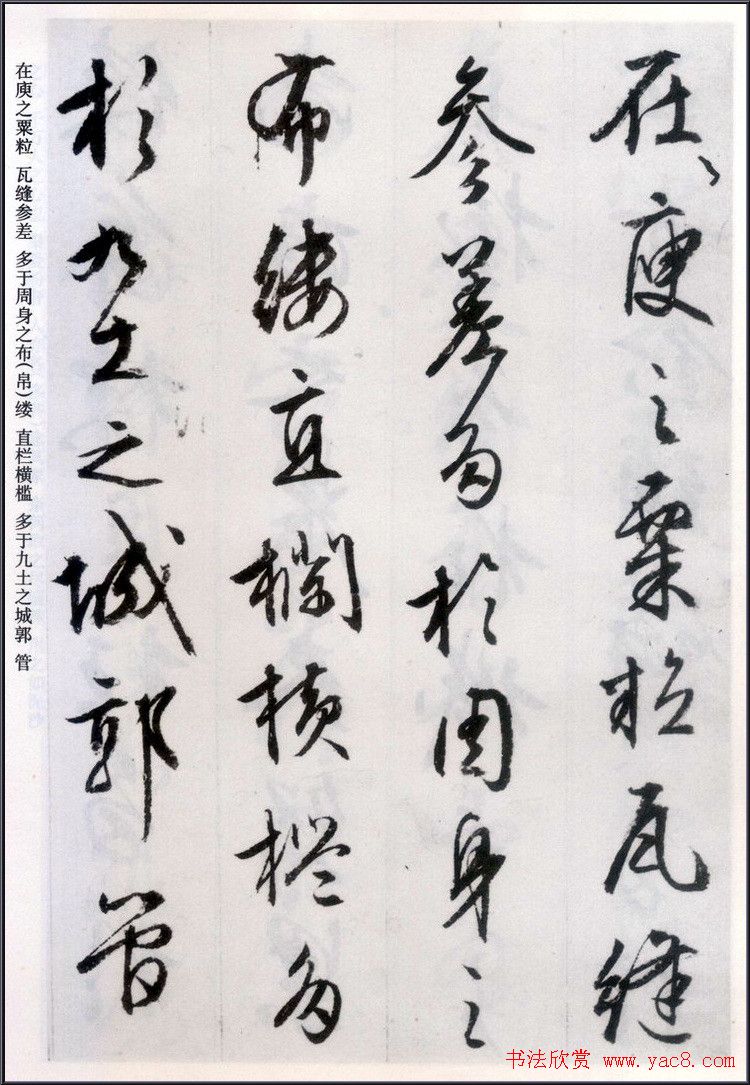 在庾之粟粒瓦縫
参差多於周身之
布縷直欄横檻多
於九土之城郭管
在庾之粟粒 瓦缝参差 多于周身之布(帛)缕 直栏横槛 多于九土之城郭 管
书法欣赏 www.yac8.com